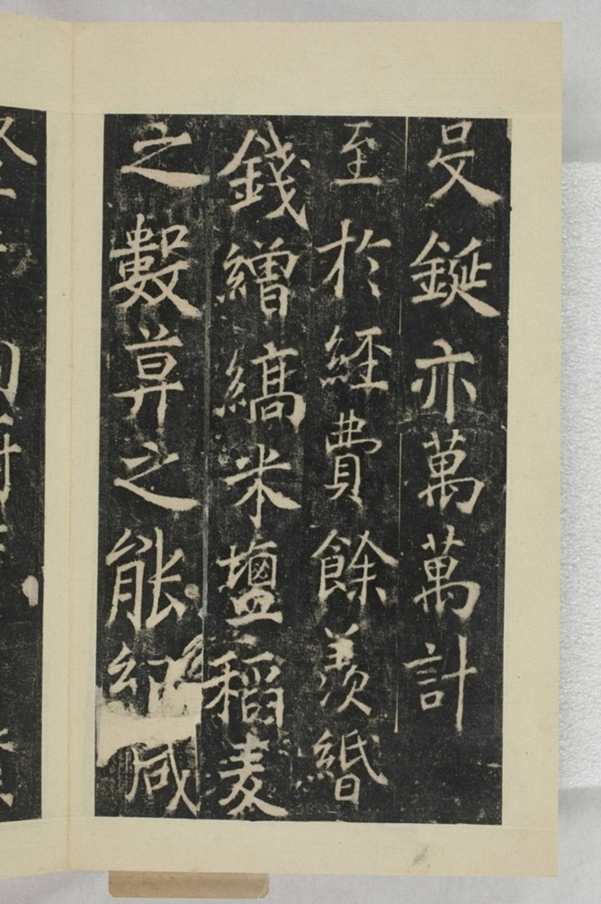 殳鋋亦萬萬計
至於經費餘羨緡
錢繒縞米鹽稻麦
之數筭之能紀咸